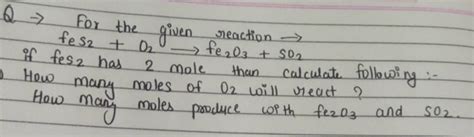 Q → For the given reaction →
fes2 + O2 → fe2O3 + SO2
if fes2 has 2 mole than calculate following :-
How many moles of O2 will react ?
How many moles produce with fe2O3 and SO2.